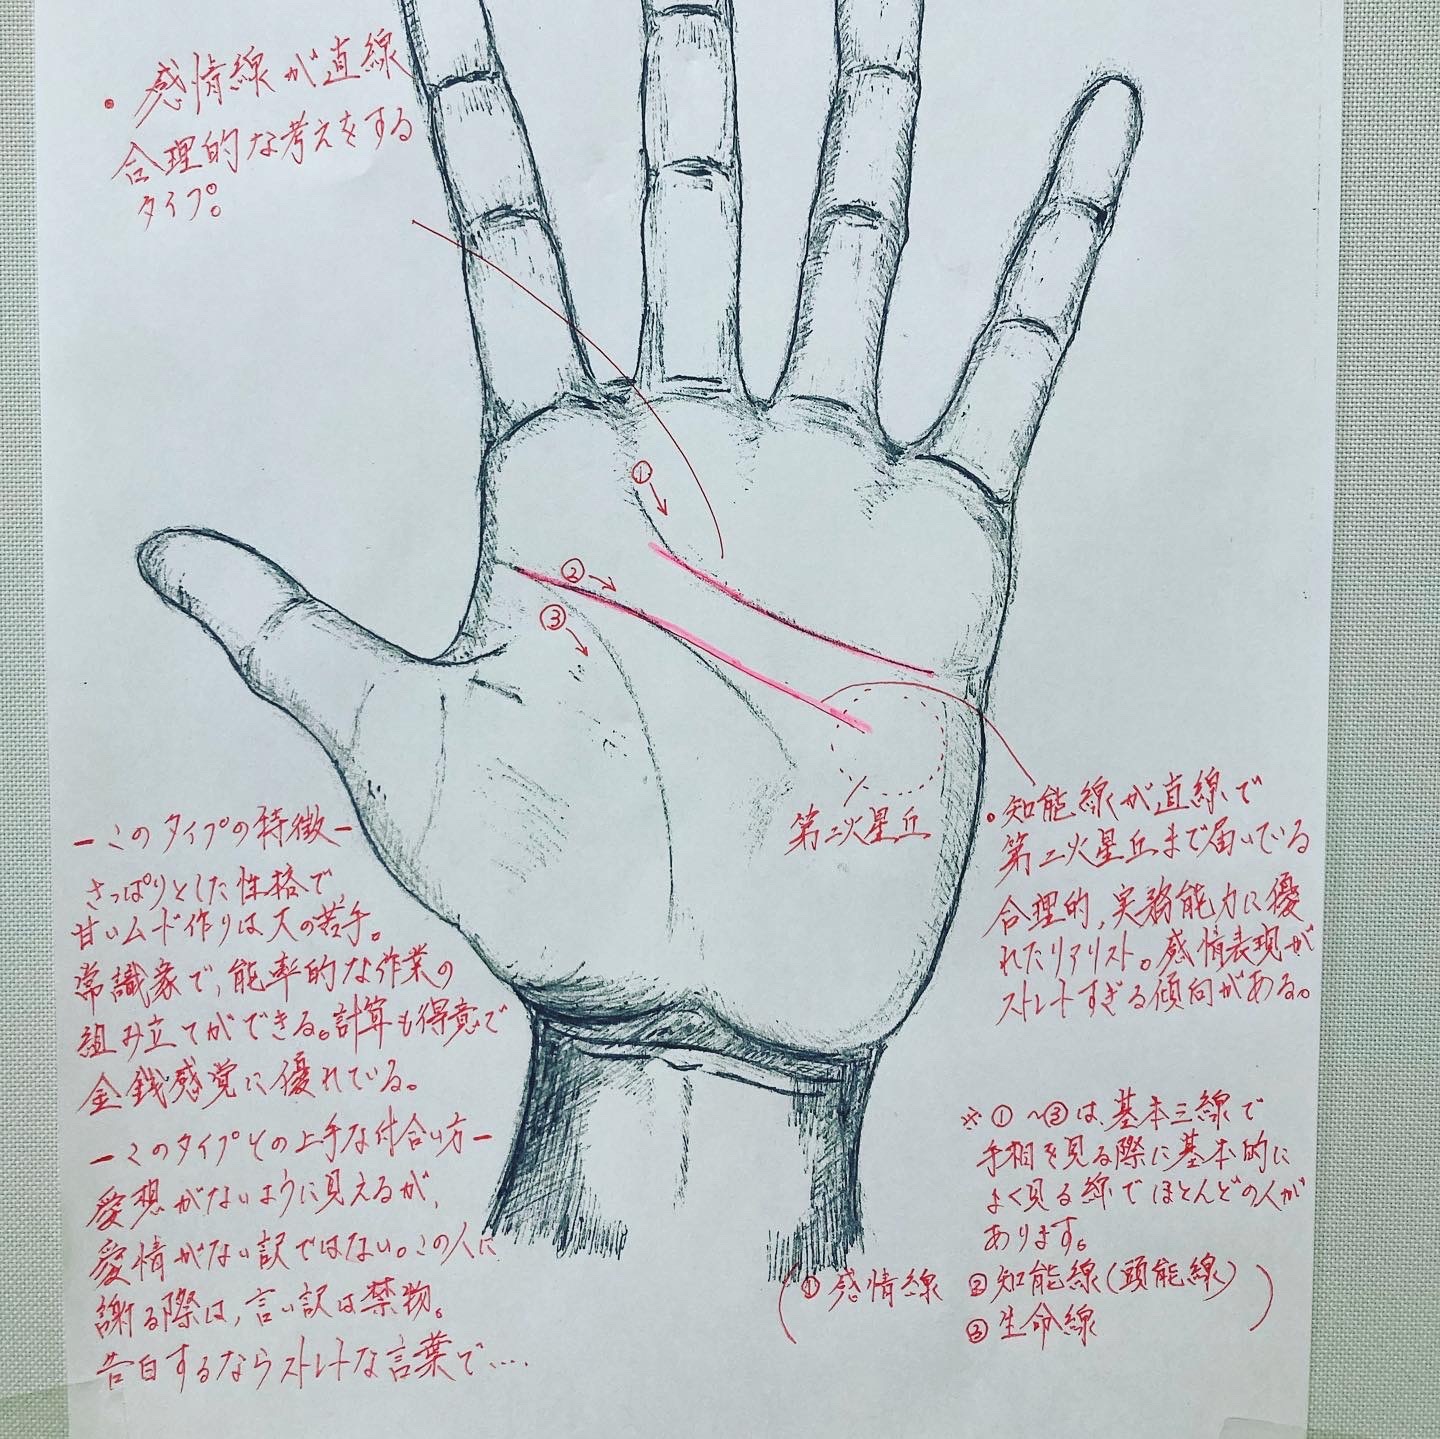 ・感情線が直線
合理的な考えをする
タイプ。
①
②
③
第二火星丘
・知能線が直線で
第二火星丘まで届いている
合理的,実務能力に優
れたリアリスト。感情表現が
ストレートすぎる傾向がある。
-このタイプの特徴-
さっぱりとした性格で、
甘いムード作りは大の苦手。
常識家で、能率的な作業の
組み立てができる。計算も得意で
金銭感覚に優れている。
-このタイプとの上手な付合い方-
愛想がないように見えるが、
愛情がない訳ではない。この人に
謝る際は、言い訳は禁物。
告白するならストレートな言葉で….
※①~③は、基本三線で
手相を見る際に基本的に
よく見る線でほとんどの人が
あります。
(①感情線 ②知能線(頭能線)
③生命線)